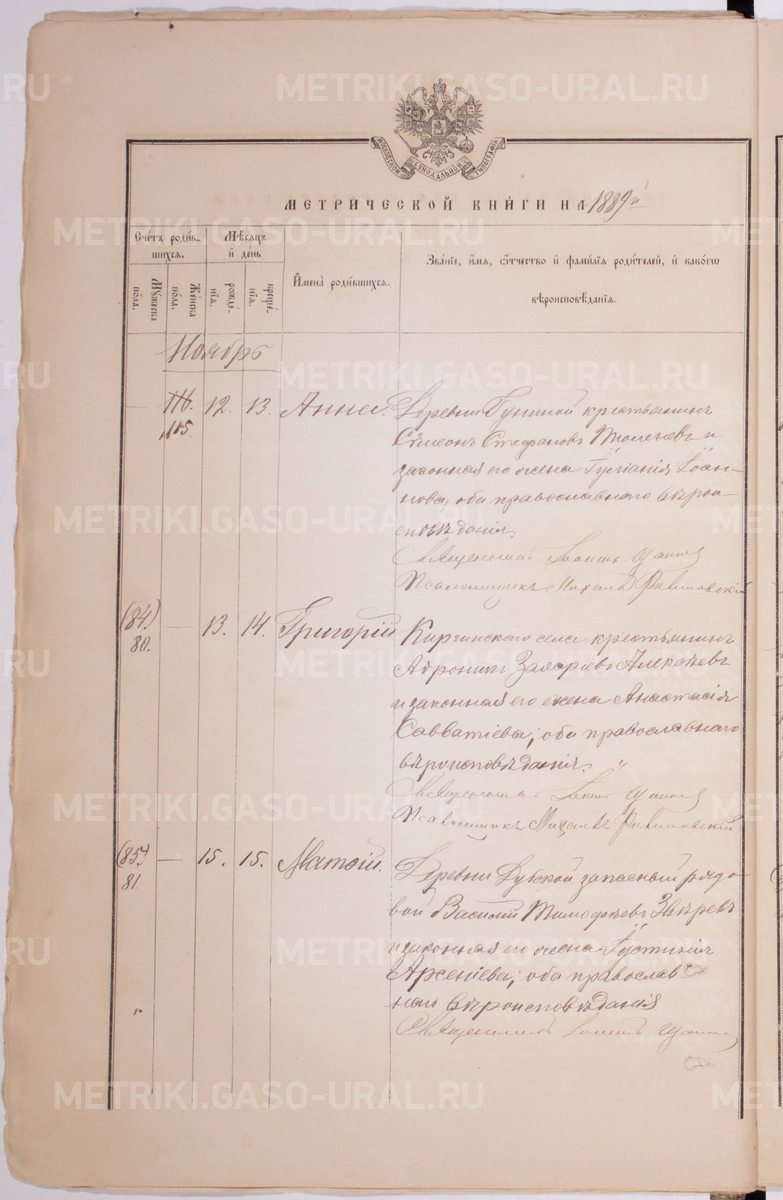 МОСКОВСКОЙ СѴНОДАЛЬНОЙ ТИПОГРАФІИ
МЕТРИ́ЧЕСКОЙ КНИ́ГИ НА 1889й
Сче́тъ роди́в-
шихся.
Мѣ́сяцъ
и҆ де́нь
И҆мена̀ роди́вшихся.
Зва́нїе, и҆́мя, ѻ҆́тчество и҆ фами́лїѧ роди́телей, и҆ како́гѡ
вѣроисповѣ́данїѧ.
Мꙋ́жеска по́ла.
Же́нска по́ла.
рожде́нїѧ.
креще́нїѧ.
Ноябрь
— 116. 12. 13. Анна. Деревни крестьянинъ
115. Сѵмеонъ Стефановъ и
законная его жена Іоан-
нова, оба православнаго вѣрои-
сповѣданія.
Священникъ Іоаннъ
Псаломщикъ Михаилъ
(84) — 13. 14. Григорій Киргинскаго села крестьянинъ
80. Захаріевъ Алексѣевъ
и законная его жена Анастасія
Савватіева; оба православнаго
вѣроисповѣданія.
Священникъ Іоаннъ
Псаломщикъ Михаилъ
(85) — 15. 15. Матѳій. Деревни запасный рядо-
81. вой Василій Тимофѣевъ Звѣревъ
и законная его жена Іустинія
Арсеніева; оба православ-
наго вѣроисповѣданія
Священникъ Іоаннъ
METRIKI.GASO-URAL.RU